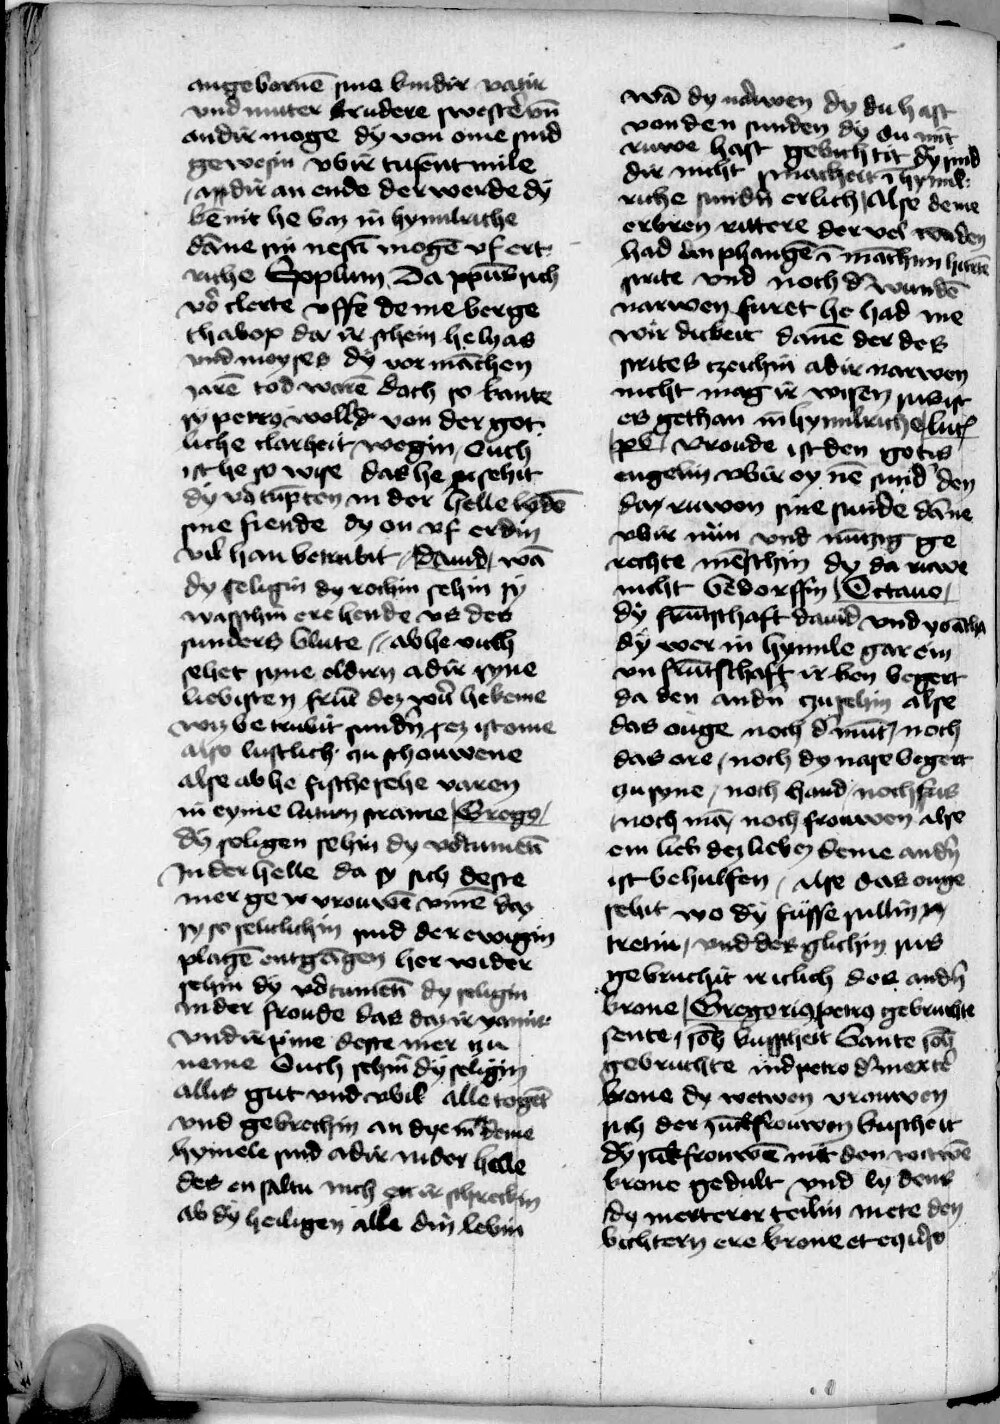 angeborne sine kindir vatir
vnd muter brudere swestere vn
andir moge dy von ome sind
gewesin vbir tusent mile
andir an ende der werde dy
kenit he baz in hymilriche
dane sin nestin moge vf ert
riche Exeplum Da xpus sich
vorclerte vffe deme berge
thabox dar ir schein helyas
vnd moyses dy vor manchen
jaren tod waren doch so kante
sy petrus wolle von der got
liche clarheit wegin Ouch
ist he so wise das he sehit
dy vortumpten in der helle lyden
sine fiende dy on vf erdin
vil han betrubit Dauid wan
dy seligin dy rochin sehin sy
waschin ere hende vs des
sunders blute ab he ouch
sehet syne eldirn adir syne
liebisten frunt dez wirt he keine
wiz betrubit sundern ez ist ome
also lustlich zu schouwene
alse ab he fissche sehe varen
in eyme lutirn wasser Grego
dy seligen sehin dy vortumeten
In der helle da sy sich deste
mer gevrouwen vmme daz
sy so selitlichin sind der ewigin
plagen entgangen her wider
sehin dy vortumeten dy seligin
in der froude das daz ir yamir
vnd ir pine deste mer zu
neme Ouch sehin dy seligin
allis gut vnd vbil alle togent
vnd gebrechin an dye in deme
hymele sind adir in der helle
des en saltu nich er schreckin
ab dy heiligen alle din lebin
wan dy narwen dy du hast
von den sunden dy du mit
ruwe hast gebichtit dy sind
dir nicht smacheit in hymil
riche sundern erlich Alse deme
erbren rittere der vel wunden
had enphangen in manchim herten
strite vnd noch der wunden
narwen furet he had me
wirdickeit dane der des
strites czeichin adir narwen
nicht mag ir wisen sus ist
es gethan in hymilriche luc
xv vroude ist den gotis
engelin vbir ey nen sunder den
daz ruwen sine sunde dane
vbir nun vnd nunzig ge
rechte menschin dy da ruwe
nicht bedorffin Octauo
dy fruntschaft dauid vnd yonatha
dy wer in hymile gar ein
vnfruntschaft ir ken begert
da den andern czu sehin alse
das ouge noch der munt noch
das ore noch dy nase begert
zu syne noch hand noch fus
noch man noch frouwen alse
ein lieb dez lieben deme andern
ist behulfen alse das ouge
sehit wo dy fusse sullin
tretin vnd des glichin sus
gebruchit ir iclich des andern
krone Gregorius petrus gebruchte
sente joh kusscheit Sante joh
gebruchte sind petro der merter
krone dy wetwen vrouwen
sich der juncfrouwen kuscheit
dy juncfrouwen mit den wetwen
krone gedult vnd lydens
dy merterer teilin mete den
bichtern ere krone et equerso